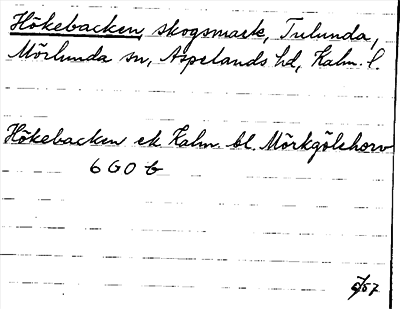 Hökebacken, skogsmark, Tulunda,
Mörlunda sn, Aspelands hd, Kalm. l.
Hökebacken ek Kalm. bl. Mörkgölehorv
6 G O b
/57